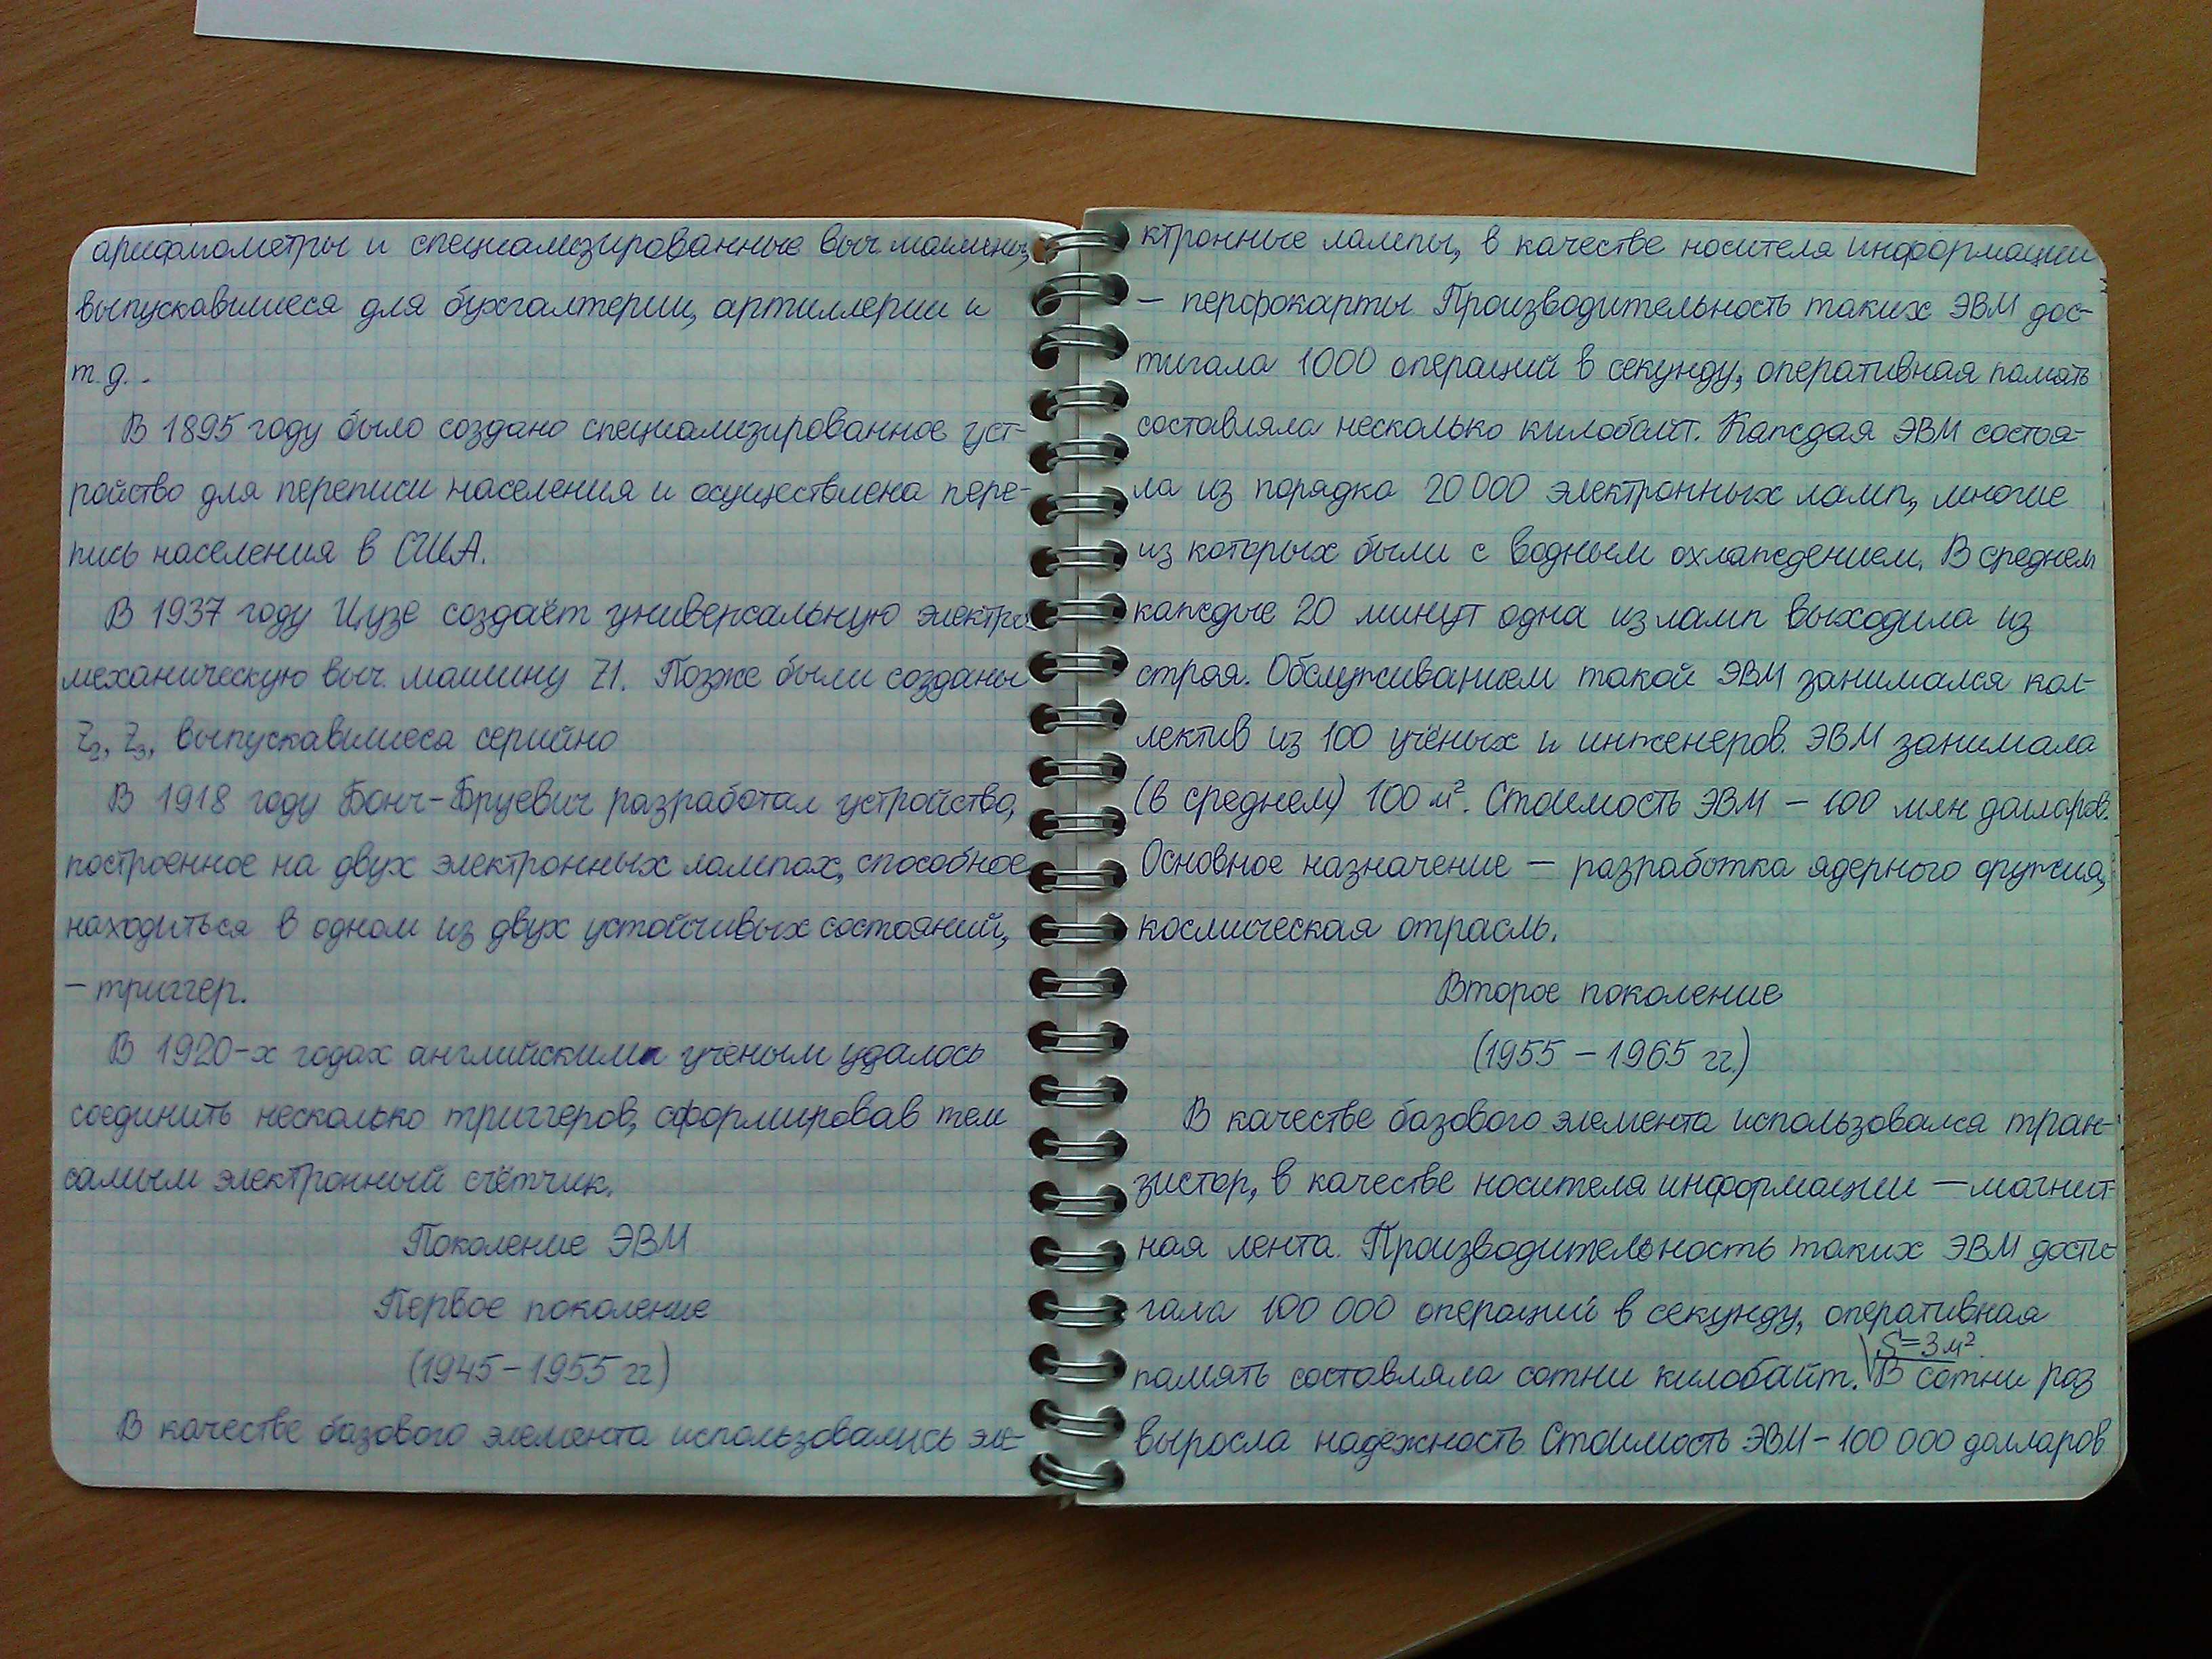 арифмометры и специализированные выч. машины,
выпускавшиеся для бухгалтерии, артиллерии и
т.д..
В 1895 году было создано специализированное уст-
ройство для переписи населения и осуществлена пере-
пись населения в США.
В 1937 году Цузе создаёт универсальную электро-
механическую выч. машину Z1. Позже были созданы
Z2, Z3, выпускавшиеся серийно
В 1918 году Бонч-Бруевич разработал устройство,
построенное на двух электронных лампах, способное
находиться в одном из двух устойчивых состояний,
– триггер.
В 1920-х годах английским учёным удалось
соединить несколько триггеров, сформировав тем
самым электронный счётчик.
Поколение ЭВМ
Первое поколение
(1945 – 1955 гг)
В качестве базового элемента использовались эле-
ктронные лампы, в качестве носителя информации
– перфокарты. Производительность таких ЭВМ дос-
тигала 1000 операций в секунду, оперативная память
составляла несколько килобайт. Каждая ЭВМ состоя-
ла из порядка 20 000 электронных ламп, многие
из которых были с водным охлаждением. В среднем
каждые 20 минут одна из ламп выходила из
строя. Обслуживанием такой ЭВМ занимался кол-
лектив из 100 учёных и инженеров. ЭВМ занимала
(в среднем) 100 м². Стоимость ЭВМ – 100 млн долларов.
Основное назначение – разработка ядерного оружия,
космическая отрасль.
Второе поколение
(1955 – 1965 гг.)
В качестве базового элемента использовался тран-
зистор, в качестве носителя информации – магнит-
ная лента. Производительность таких ЭВМ дости-
гала 100 000 операций в секунду, оперативная
S=3м².
память составляла сотни килобайт. В сотни раз
выросла надёжность. Стоимость ЭВМ – 100 000 долларов